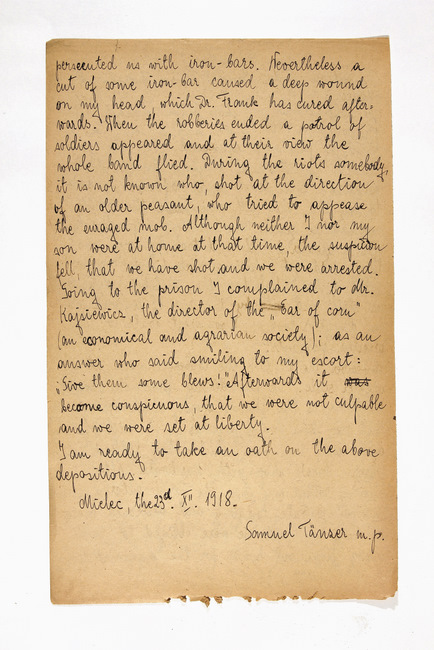 persecuted us with iron-bars. Nevertheless a
cut of some iron-bar caused a deep wound
on my head, which Dr. Frank has cured after-
wards. When the robberies ended a patrol of
soldiers appeared and at their view the
whole band flied. During the riots somebody,
it is not known who, shot at the direction
of an older peasant, who tried to appease
the enraged mob. Although neither I nor my
son were at home at that time, the suspision
fell, that we have shot and we were arrested.
Going to the prison I complained to Mr.
Kazsiewicz, the director of the „bar of corn"
(an economical and agrarian society); as an
answer who said smiling to my escort:
„Give them some blews!" Afterwards it was
become conspicuous, that we were not culpable
and we were set at liberty.
I am ready to take an oath on the above
depositions.
Mielec, the 23rd. XII. 1918.
Samuel Tänzer m.p.